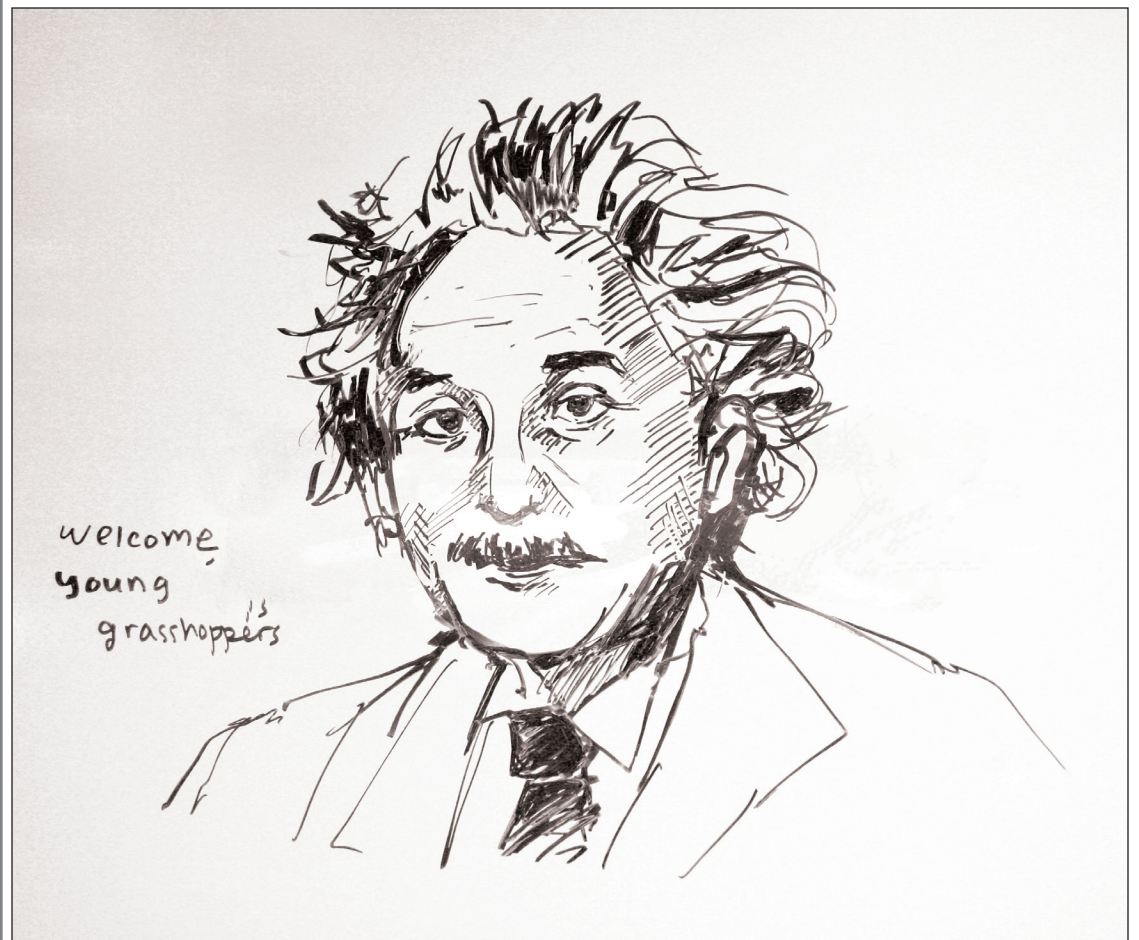 welcome,
young
grasshoppers